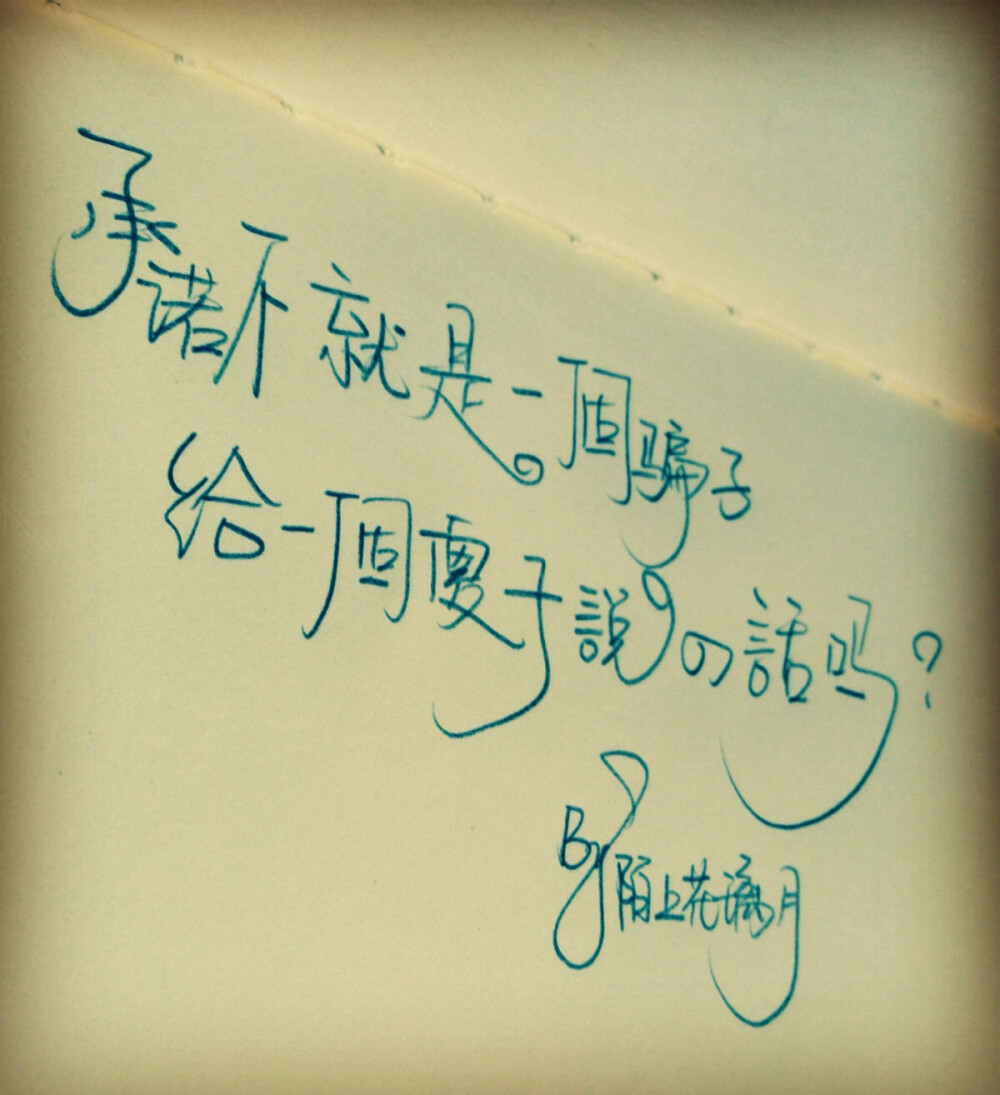 承诺不就是一個骗子
给一個傻子説の話吗?
By陌上花璃月